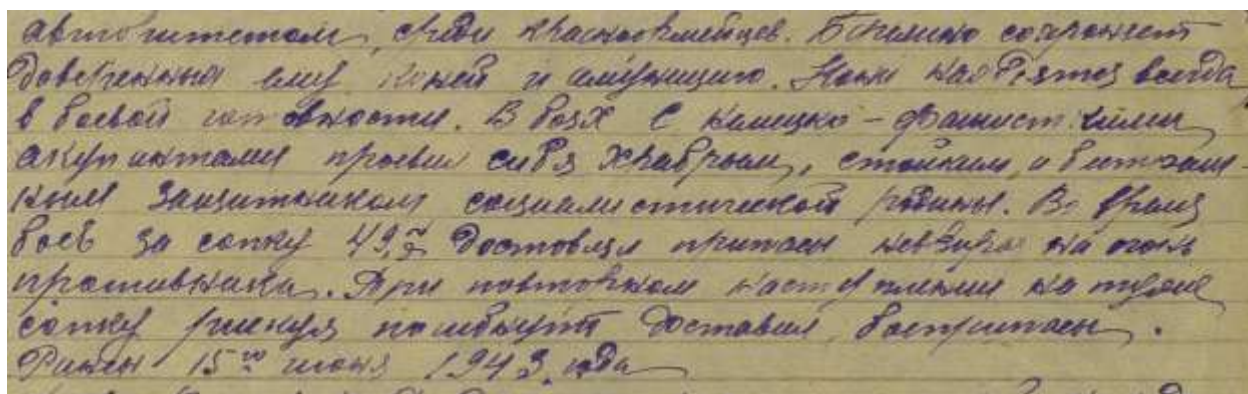 авторитетом, среди красноармейцев. Бережно сохраняет
доверенных ему коней и амуницию. Кони находятся всегда
в боевой готовности. В боях с немецко-фашистскими
акупантами проявил себя храбрым, стойким, и
ным защитником социалистической родины. Во время
боев за сопку 49,2 достовлял припасы невзирая на огонь
противника. При повторном наступлении на
сопку рискуя доставил боеприпасы.
Ранен 15го июня 1943 года